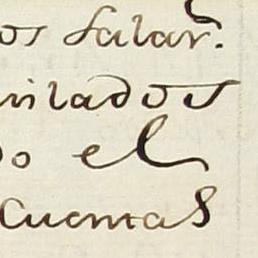 os Salar.^s
nilados
do el
Cuentas